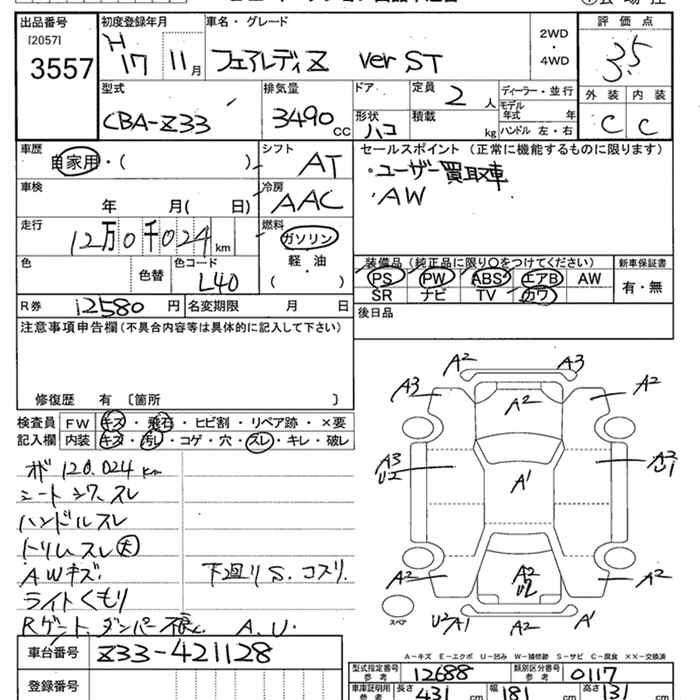 出品番号
[2057]
3557
初度登録年月
H 17 11月
車名・グレード
フェアレディZ Ver ST
2WD
・
4WD
評価点
3.5
外装 内装
C C
型式
CBA-Z33
排気量
3490cc
ドア
形状
ハコ
定員 2人
積載 kg
ディーラー・並行
モデル年式 年
ハンドル 左・右
車歴
自家用・( )
シフト
AT
車検
年 月( 日)
冷房
AAC
走行
12万0千024km
燃料
ガソリン
軽・油
( )
色
色替
色コード
L40
R券 12580円
名変期限 月 日
セールスポイント(正常に機能するものに限ります)
・ユーザー買取車
・AW
装備品(純正品に限り○をつけてください)
PS PW ABS エアB AW
SR ナビ TV カワ
新車保証書
有・無
後日品
注意事項申告欄(不具合内容等は具体的に記入して下さい)
修復歴 有 〔箇所 〕
検査員
記入欄
FW キズ・飛石・ヒビ割・リペア跡・×要
内装 キズ・汚レ・コゲ・穴・スレ・キレ・破レ
オド 120,024km
シートシワ、スレ
ハンドルスレ
トリムスレ大
AWキズ
下廻りS.コスリ.
ライトくもり
Rゲート、ダンパー不良 A.U.
A2 A3
A3 A2 A2
A3 U2 A1 A2 U1
A2 A2 U2 A2
スペア
U2 A1 A2 A1
A-キズ E-エクボ U-凹み W-補修跡 S-サビ C-腐食 ××-交換済
車台番号 Z33-421128
登録番号
型式指定番号
参考
12688
類別区分番号
参考
0117
車庫証明用
参考
長さ 431cm 幅 181cm 高さ 131cm